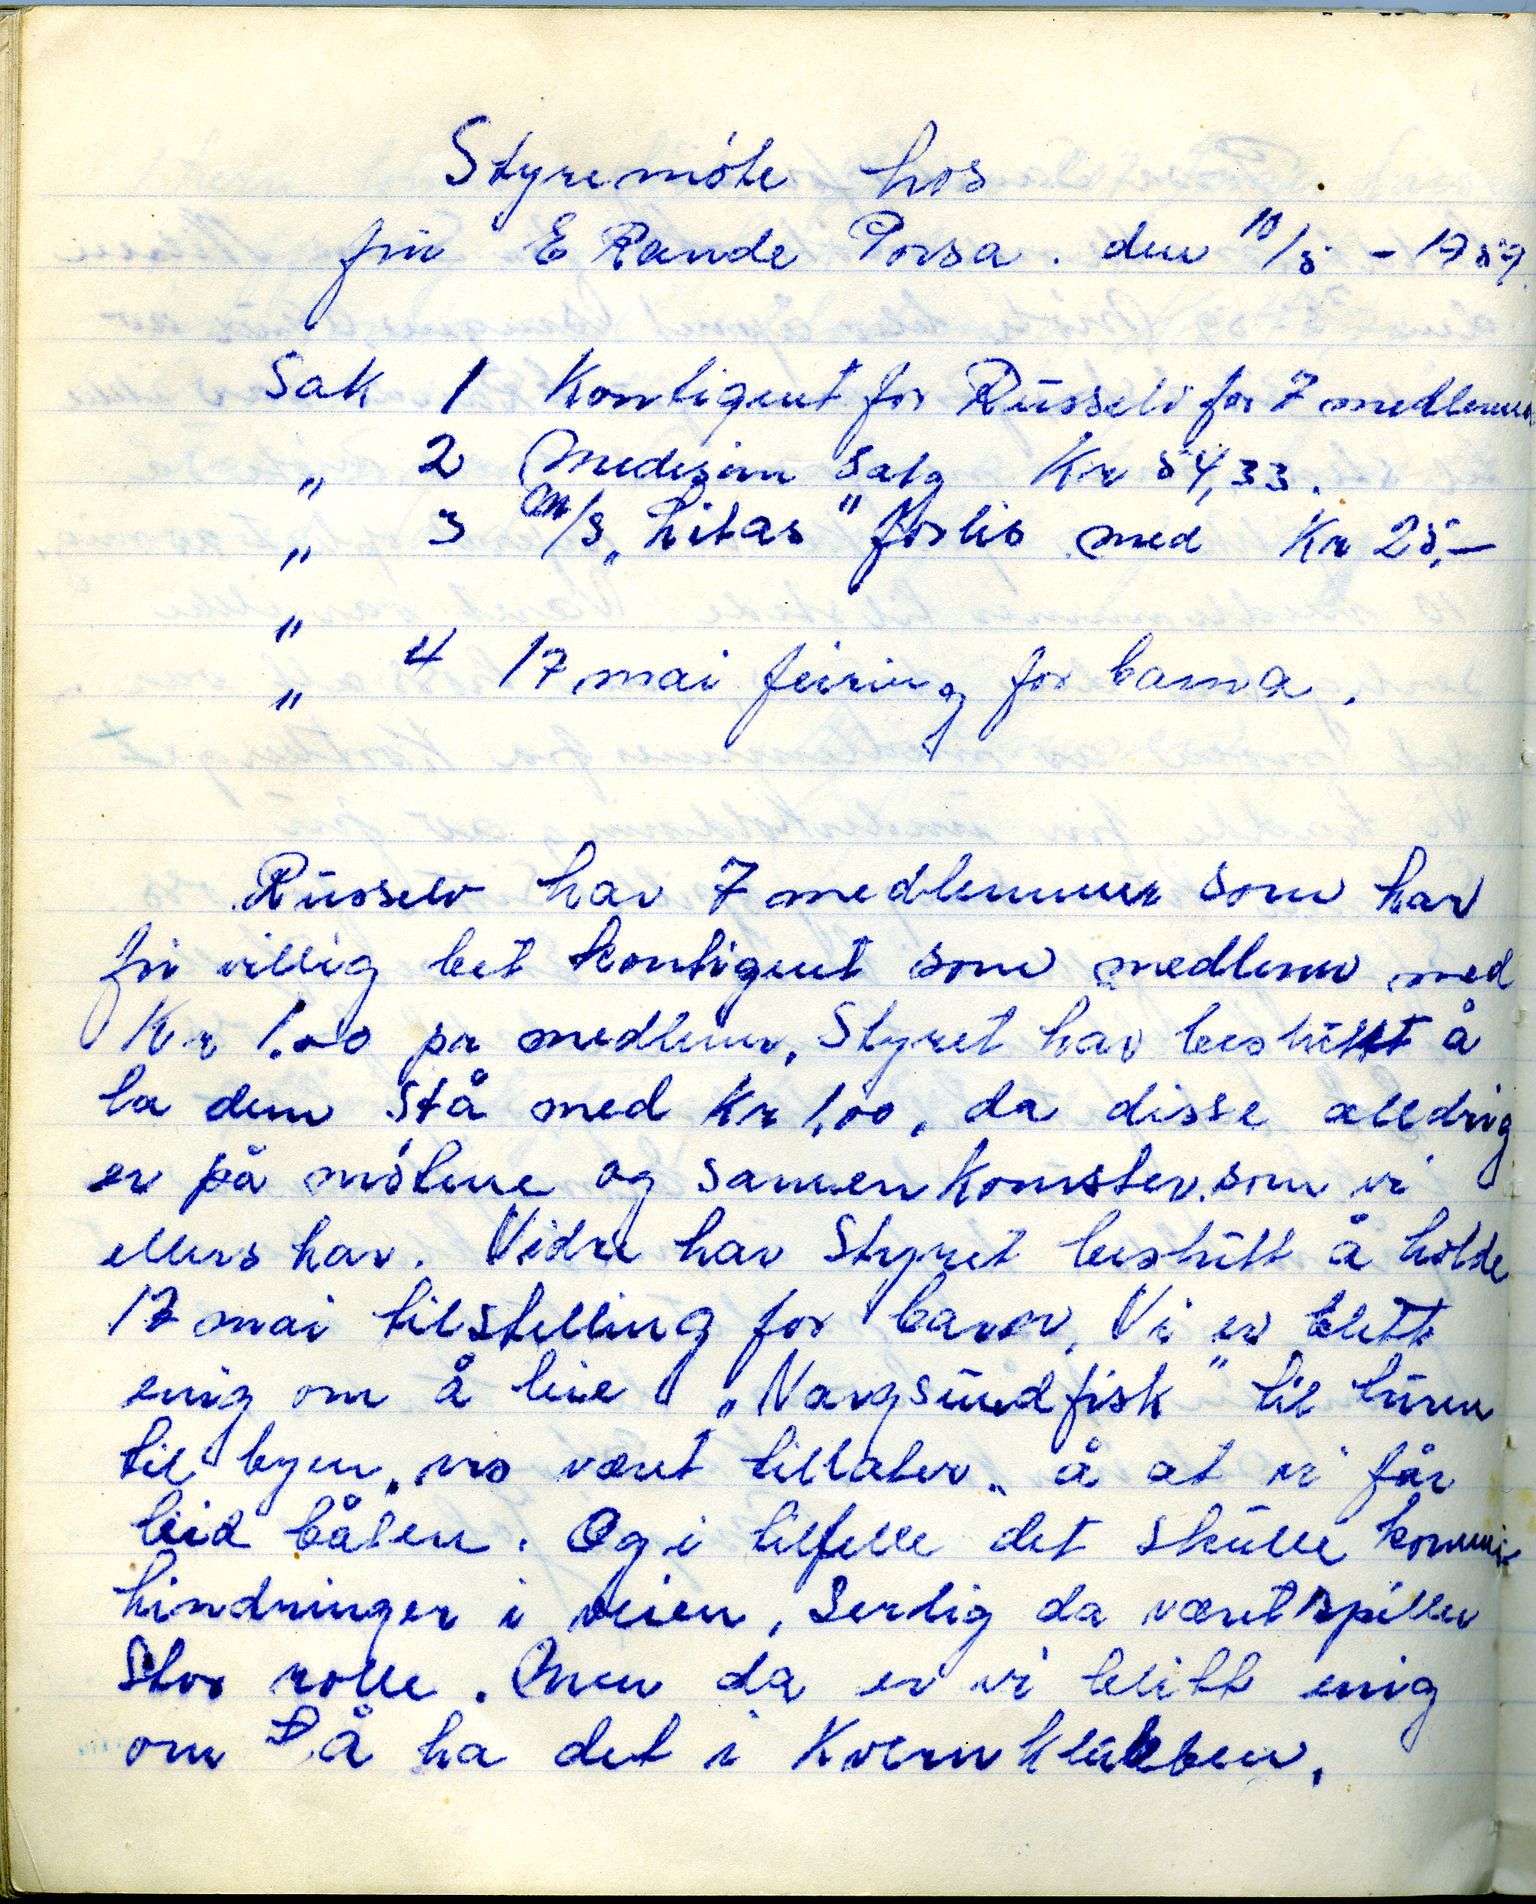 Styremöte hos
frü E Rande Porsa. den 10/5 - 1957.
Sak 1 Kontigent for Rüsselv for 7 medlemmer
„ 2 Medisin salg Kr 54,33.
„ 3 M/S „Litas" forlis med Kr 25,-
„
„ 4 17 mai feiring for barna.
Rüsselv har 7 medlemmer som har
fri villig bet kontigent som medlem med
Kr 1.00 pr medlem. Styret har beslütt å
la dem stå med Kr 1,00, da disse alldrig
er på mötene og samenkomster. som vi
ellers har. Vidre har Styret beslütt å holde
17 mai tilstelling for barn. Vi er blitt
enig om å leie „Vargsündfisk" til türen
til byen, vis været tillater. å at vi får
leid båten. Og i tilfelle det skülle komme
hindringer i veien, Serlig da været spiller
Stor rolle. Men da er vi blitt enig
om å ha det i Kvernklubben.